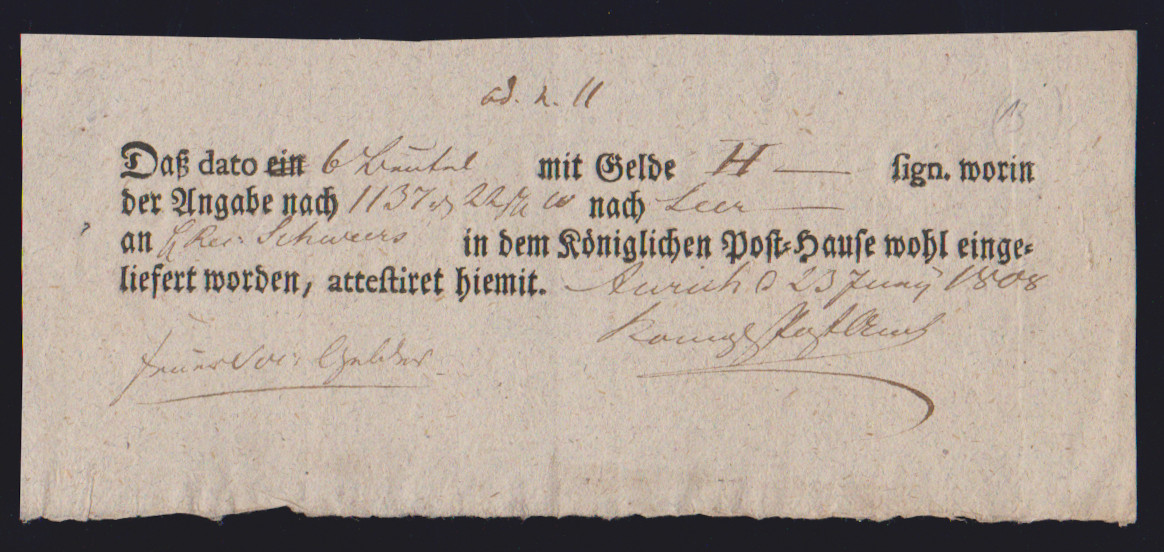 ad. n. 11
Daß dato ein 6 Beutel mit Gelde H — sign. worin
der Angabe nach 1137 22 nach Leer —
an Schweers in dem Königlichen Post-Hause wohl einge-
liefert worden, attestiret hiemit. Aurich d 23 Juny 1808
Königl Post Amt
Feuer Soc: Gelder